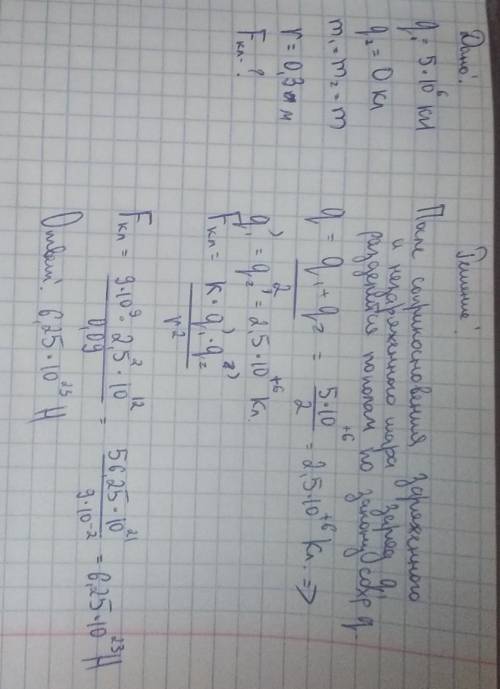 Дано:
q₁ = 5·10⁶ Кл
q₂ = 0 Кл
m₁ = m₂ = m
r = 0,3 м
Fкл - ?
Решение:
После соприкосновения заряженного
и незаряженного шара заряд q₁
разделится пополам по закону сохр q
q = q₁ + q₂ / 2 = 5·10⁺⁶ / 2 = 2,5·10⁺⁶ Кл. ⇒
q₁' = q₂' = 2,5·10⁺⁶ Кл.
Fкл = к·q₁'·q₂' / r²
Fкл = 9·10⁹·2,5²·10¹² / 0,09 = 56,25·10²¹ / 9·10⁻² = 6,25·10²³ Н
Ответ: 6,25·10²³ Н